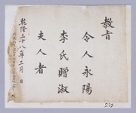 教旨
令人永陽
李氏贈淑
夫人者
乾隆三十八年二月 日